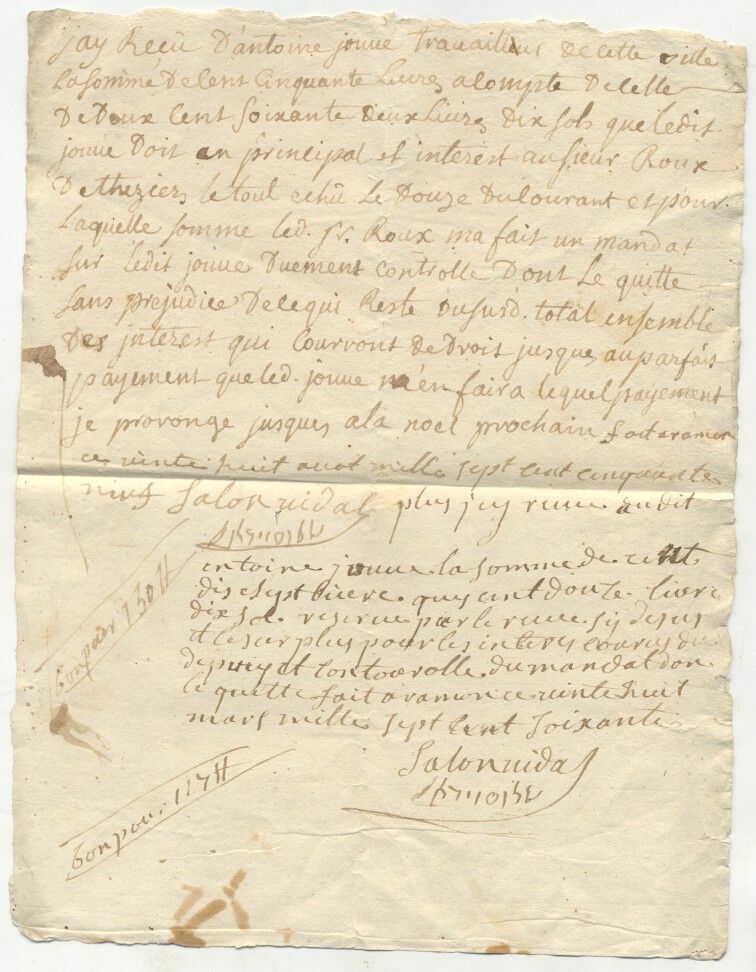 jay Recû D'antoine jouve travailleur De cette ville
La somme De Cent Cinquante Livres a Compte De Celle
De Deux Cent Soixante deux Livres Dix sols que ledit
jouve Doit en principal et interest au sieur Roux
De theziers le tout echû Le Douze Du Courant et pour
Laquelle somme led. sr. Roux ma fait un mandat
sur ledit jouve Duement Controlle Dont Le quitte
sans prejudice De ce qui Reste du susd. total ensemble
Des interest qui Courront de Droit jusques au parfait
payement que led. jouve m'en faira lequel payement
je proronge jusques a la noel prochain fait aramon
ce vinte huit avot mille sept cent cinquante
nuf Salon vidal plus jay recu dudit
entoine jouve la somme de cent
dise sept livere quy cent douze livre
dix sol reserve par le recu sy desus
et le surplus pour les interes courus
depuis et controrolle du mandat don
le quitte fait aramon ce vinte huit
mars mille sept cent soixante
Salon vidal
bon pour 150 ₶
bon pour 117 ₶